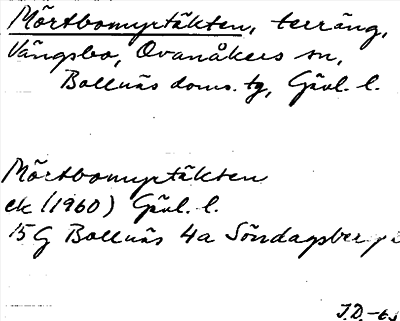 Mörtbomyrtäkten, terräng,
Vängsbo, Ovanåkers sn,
Bollnäs doms. tg, Gävl. l.
Mörtbomyrtäkten
ek (1960) Gävl. l.
15 G Bollnäs 4a Söndagsberg
J.D. -65